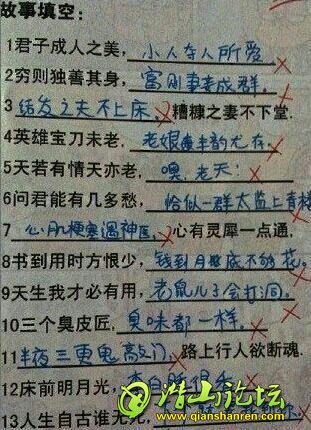 故事填空：
1君子成人之美，小人夺人所爱
2穷则独善其身，富则妻妾成群.
3 结发之夫不上床，糟糠之妻不下堂.
4英雄宝刀未老，老娘风韵尤存.
5天若有情天亦老，噢，老天
6问君能有几多愁，恰似一群太监上青楼
7 心肌梗塞遇神医，心有灵犀一点通，
8书到用时方恨少，钱到月底不够花。
9天生我才必有用，老鼠儿子会打洞。
10三个臭皮匠，臭味都一样。
11半夜三更鬼敲门，路上行人欲断魂.
12床前明月光，李白
13人生自古谁无死，
浒山论坛
qianshanren.com